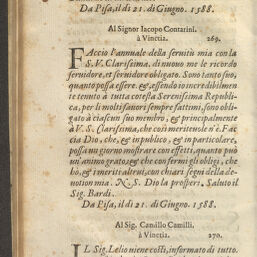 Da Pisa, il dì 21. di Giugno. 1588.
Al Signor Iacopo Contarini.
à Vinetia. 269.
FAccio l'annuale della seruitù mia con la
S. V. Clarissima, di nuouo me le ricordo
seruidore, et seruidore obligato. Sono tanto suo,
quanto possa essere, & essendo io incredibilmen
te tenuto à tutta cotesta Serenissima Republi
ca, per li molti fauori sempre fattimi, sono obli-
gato à ciascun suo membro, & principalmente
à V. S. Clarissima, che così meriteuole n'è. Fac
cia Dio, che, & in publico, & in particulare,
possa un giorno mostrare con effetti, quanto può
un'animo grato, & che con fermi gli oblighi, che
hò, & i meriti altrui, con chiari segni della de-
uotion mia. N. S. Dio la prosperi. Saluto il
Sig. Bardi.
Da Pisa, il dì 21. di Giugno. 1588.
Al Sig. Camillo Camilli.
à Vinetia. 270.
IL Sig. Lelio viene costì, informato di tutto.